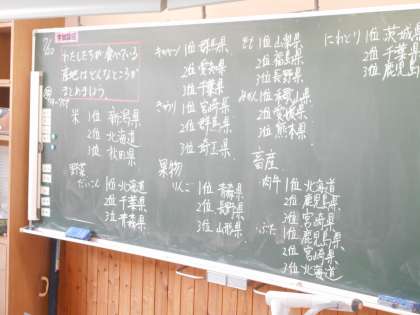 学習問題
わたしたちが食べている
産地はどんなところが
まとめましょう。
米 1位 新潟県
2位 北海道
3位 秋田県
野菜
だいこん 1位 北海道
2位 千葉県
3位 青森県
キャベツ 1位 群馬県
2位 愛知県
3位 千葉県
きゅうり 1位 宮崎県
2位 群馬県
3位 埼玉県
果物
りんご 1位 青森県
2位 長野県
3位 山形県
もも 1位 山梨県
2位 福島県
3位 長野県
みかん 1位 和歌山県
2位 愛媛県
3位 熊本県
畜産
肉牛 1位 北海道
2位 鹿児島県
3位 宮崎県
ぶた 1位 鹿児島県
2位 宮崎県
3位 北海道
にわとり 1位 茨城県
2位 千葉県
3位 鹿児島